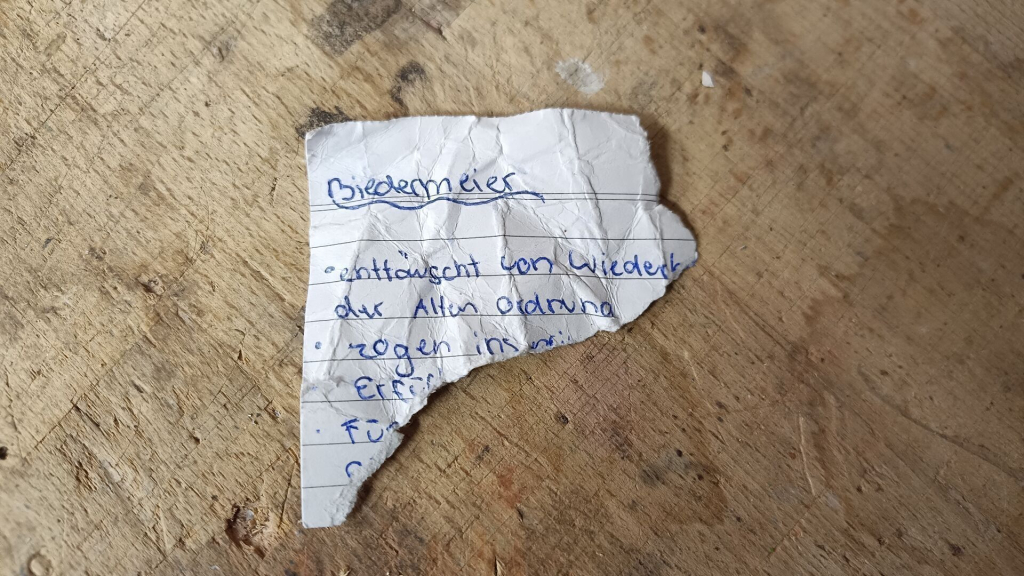 Biedermeier
• enttäuscht von Wiederh
der Alten Ordnung
• zogen ins
Erfü
• Fü